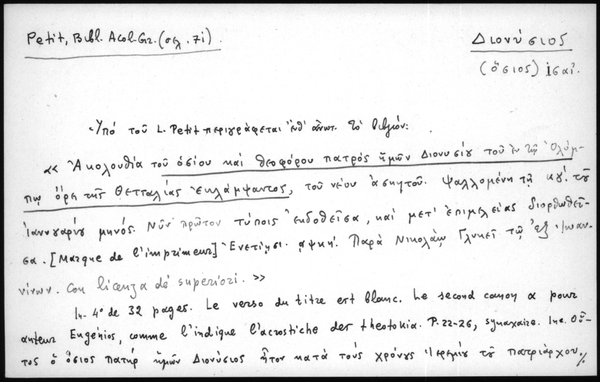 Petit, Bibl. Acol. Gr. (σελ. 71).
Διονύσιος
(ὅσιος) ισαϊ.
Ὑπό τοῦ L. Petit περιγράφεται ἔνθ' ἀνωτ. τό βιβλίον:
« Ἀκολουθία τοῦ ὁσίου καί θεοφόρου πατρός ἡμῶν Διονυσίου τοῦ ἐν τῷ Ὀλύμ-
πῳ ὄρει τῆς Θετταλίας ἐκλάμψαντος, τοῦ νέου ἀσκητοῦ. Ψαλλομένη τῇ κγ'. τοῦ
Ἰαννουαρίου μηνός. Νῦν πρῶτον τύποις ἐκδοθεῖσα, καί μετ' ἐπιμελείας διορθωθεῖ-
σα. [Marque de l'imprimeur] Ἐνετίησι. αψκή. Παρά Νικολάῳ Γλυκεῖ τῷ ἐξ Ἰωαν-
νίνων. Con licenza de' superiori. »
In-4° de 32 pages. Le verso du titre est blanc. Le second canon a pour
auteur Eugénios, comme l'indique l'acrostiche des theotokia. P. 22-26, synaxaire. Inc. Οὗ-
τος ὁ ὅσιος πατήρ ἡμῶν Διονύσιος ἦτον κατά τούς χρόνους Ἱερεμίου τοῦ πατριάρχου./.